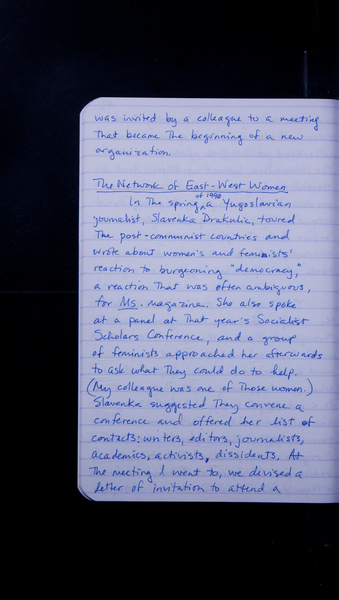 was invited by a colleague to a meeting
That became The beginning of a new
organization.
The Network of East-West Women
In The spring of 1990 a Yugoslavian
journalist, Slavenka Drakulic, toured
The post-communist countries and
wrote about women's and feminists'
reaction to burgeoning "democracy,"
a reaction That was often ambiguous,
for Ms. magazine. She also spoke
at a panel at That year's Socialist
Scholars Conference, and a group
of feminists approached her afterwards
to ask what They could do to help.
(My colleague was one of Those women.)
Slavenka suggested They convene a
conference and offered her list of
contacts: writers, editors, journalists,
academics, activists, dissidents. At
The meeting I went to, we devised a
letter of invitation to attend a